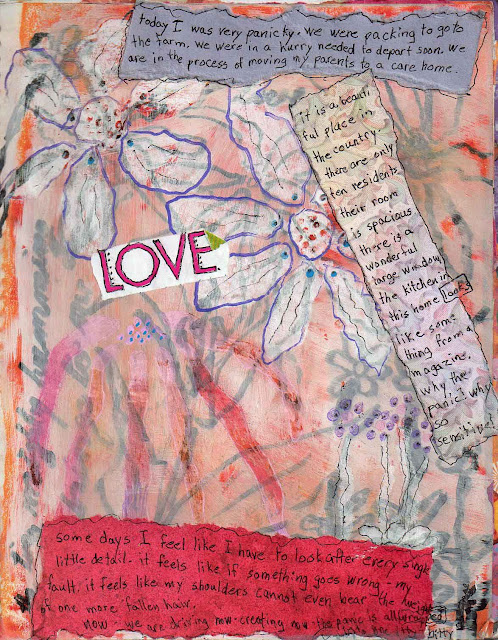 today I was very panicky. we were packing to go to
the farm. we were in a hurry needed to depart soon. we
are in the process of moving my parents to a care home.
it is a beauti
ful place in
the country.
there are only
ten residents
their room
is spacious
there is a
wonderful
large window
the kitchen in
this home looks
like some
thing from a
magazine.
why the
panic? why
so
sensitive?
LOVE
some days I feel like I have to look after every single
little detail. it feels like if something goes wrong - my
fault. it feels like my shoulders cannot even bear the weight
of one more fallen hair.
now - we are driving now - creating now - the panic is all wrapped